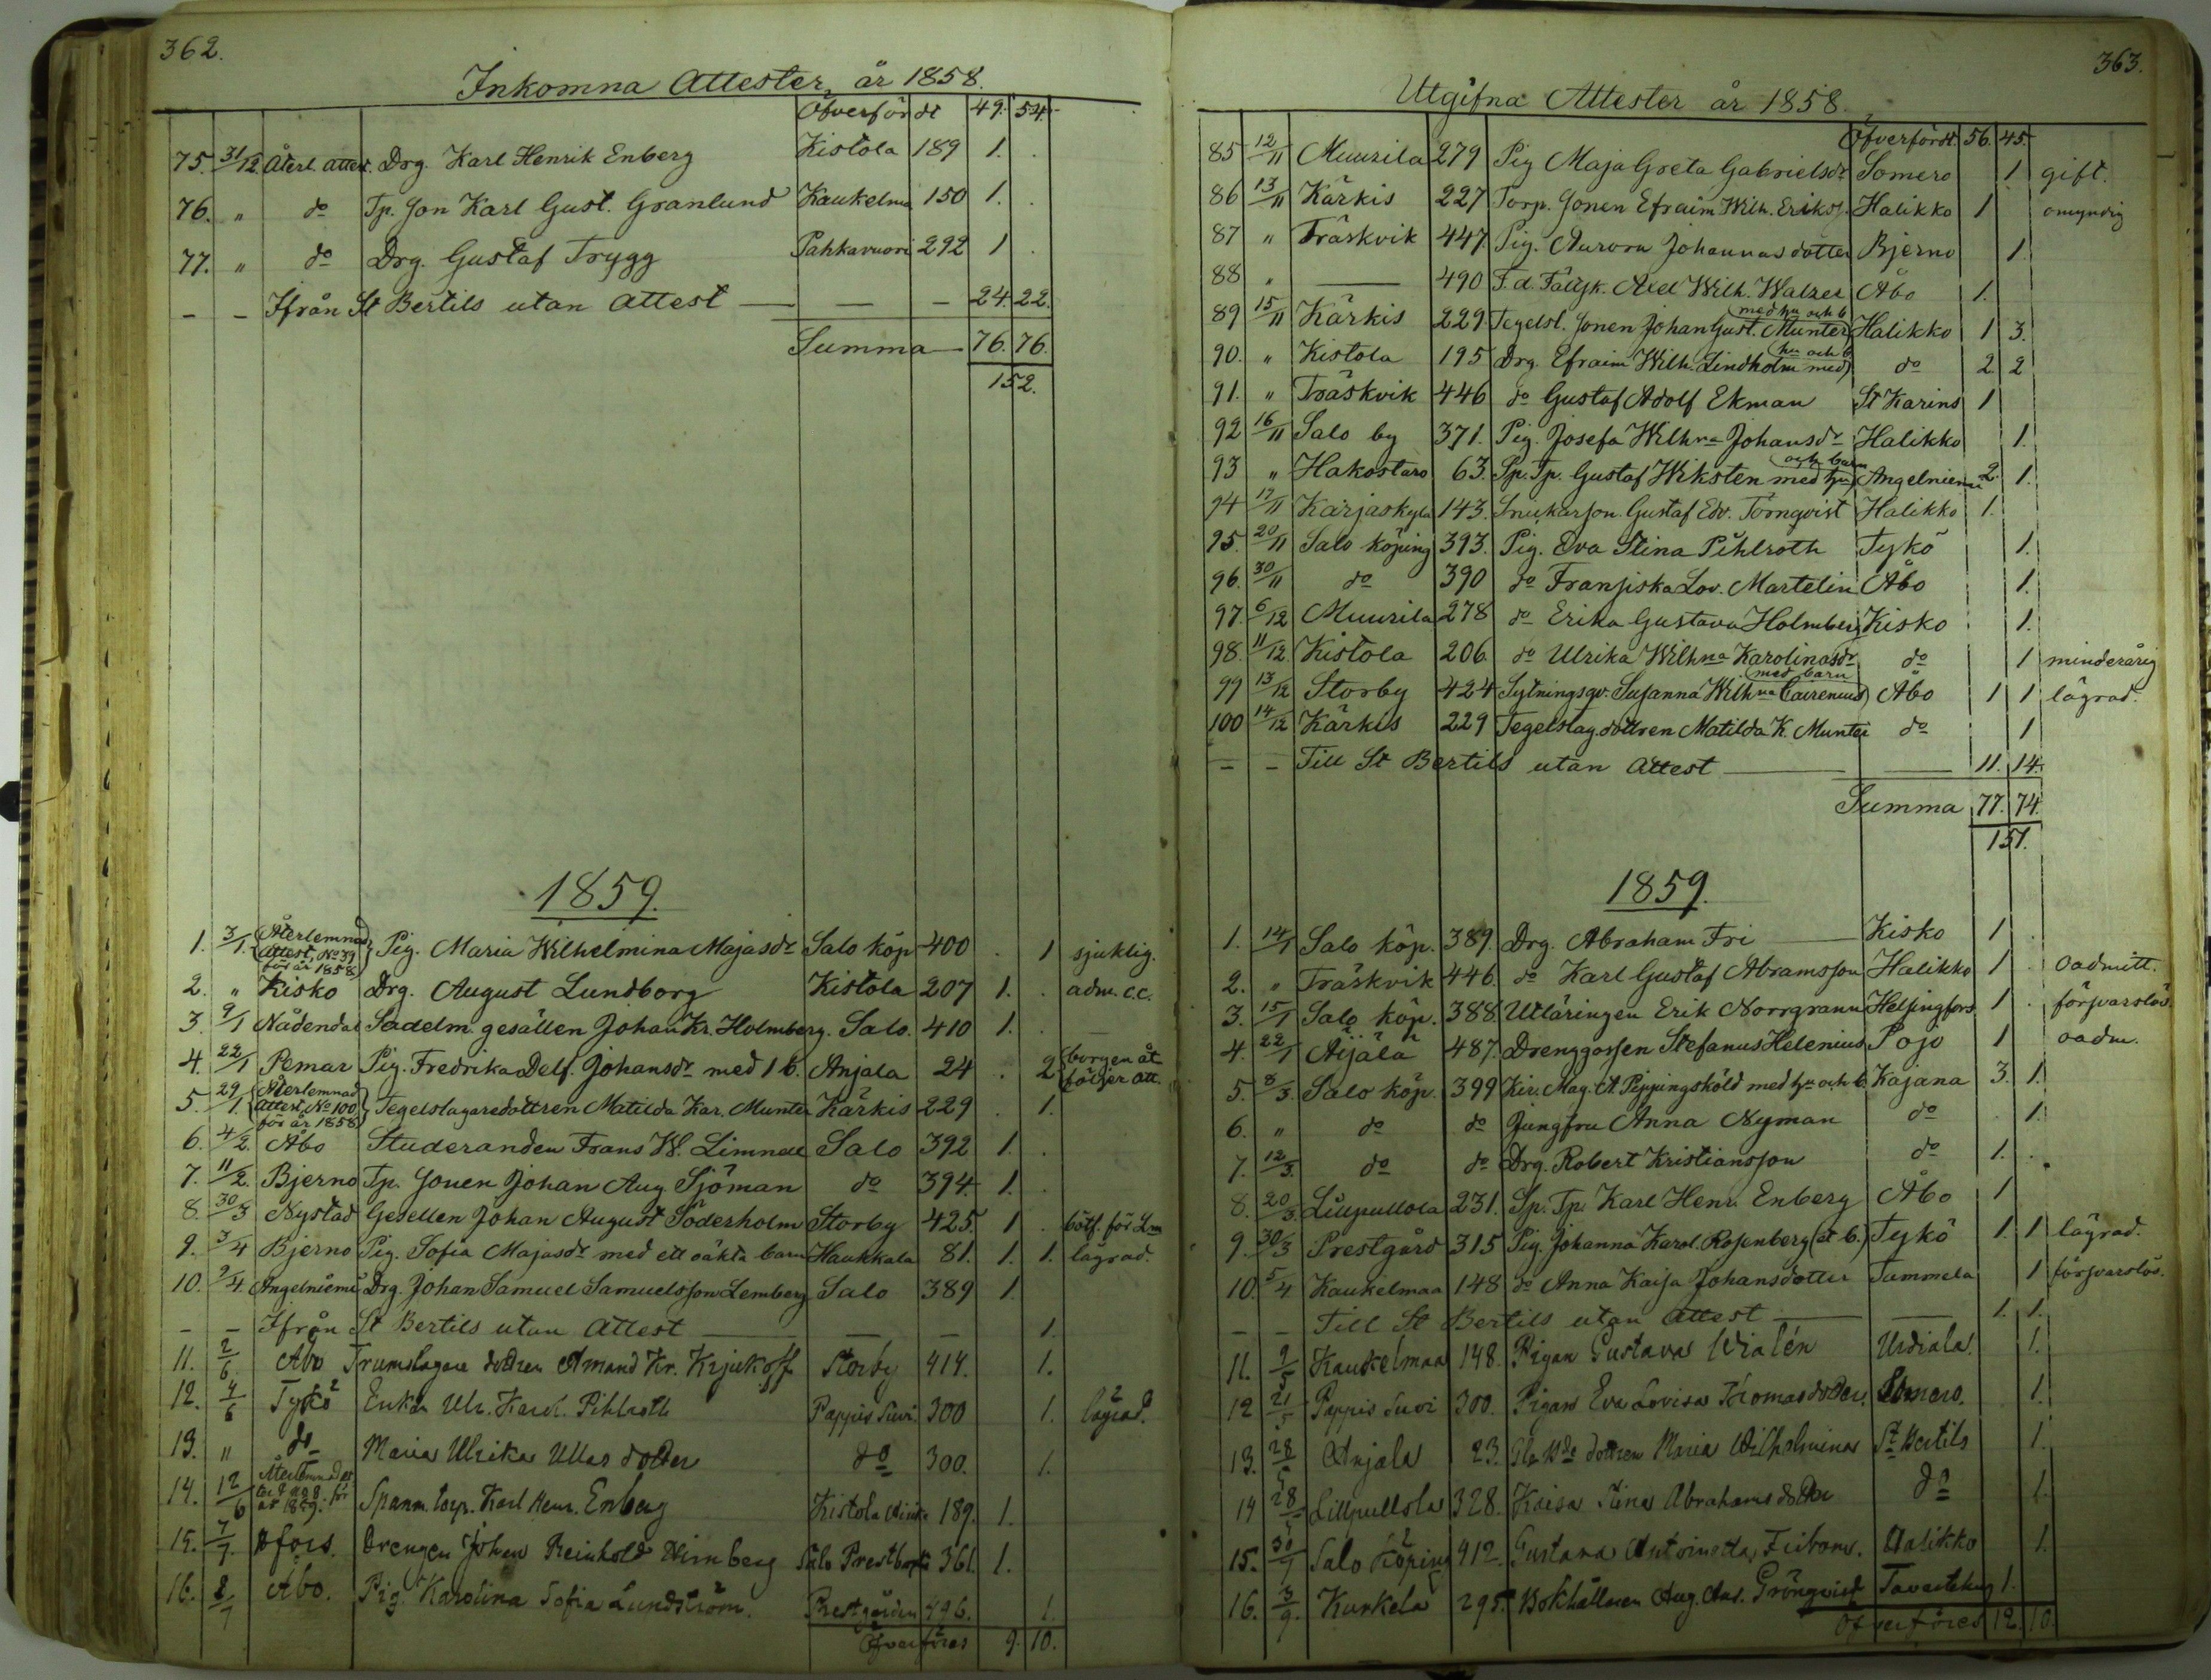 362.
Inkomna Attester, år 1858.
Öfverfördt 49. 54.
75. 31/12 Återl. attest. Drg. Karl Henrik Enberg Kistola 189 1. .
76. " do Tp. Son Karl Gust. Granlund Kaukelma 150 1. .
77. " do Drg. Gustaf Trygg Pahkavuori 292 1 .
- - Ifrån St Bertils utan attest — — - 24. 22.
Summa — 76. 76.
152.
1859.
1. 3/1. Återlemnad Attest, No 39 för år 1858 Pig. Maria Wilhelmina Majasdr Salo köp 400 . 1 sjuklig.
2. " Kisko Drg. August Lundborg Kistola 207 1. . adm. c.c.
3. 9/1 Nådendal Sadelm. gesällen Johan Kr. Holmberg. Salo. 410 1. .
4. 22/1 Pemar Pig. Fredrika Delf. Johansdr med 1 b. Anjala 24 . 2 borgen åt följer att.
5. 29/1. Återlemnad Attest No 100 för år 1858 Tegelslagaredottren Matilda Kar. Munter Kärkis 229 . 1.
6. 4/2. Åbo Studeranden Frans W. Limnell Salo 392 1. .
7. 11/2. Bjerno Tp. Sonen Johan Aug. Sjöman do 394. 1. .
8. 30/3 Nystad Gesellen Johan August Söderholm Storby 425. 1 .
9. 3/4 Bjerno Pig. Sofia Majasdr med ett oäkta barn Haukkala 81. 1. 1. lägrad.
10. 9/4. Angelniemi Drg. Johan Samuel Samuelsson Lemberg Salo 389 1.
- - Ifrån St Bertils utan Attest — — - 1.
11. 2/6. Åbo Trumslagare dottren Amand Kr. Krjukoff Storby 414. 1.
12. 4/6 Tykö Enkan Ulr. Karol. Pihlroth Pappis Suvi 300 1. lägrad.
13. " do Maria Ulrika Ullas dotter do 300. 1.
14. 12/6 Återlemnad att. år 1859. Spanm. torp. Karl Henr. Enberg Kistola 189. 1.
15. 7/7. Drengen Johan Reinhold Nirnberg Salo 361. 1.
16. 8/7 Åbo. Pig. Karolina Sofia Lundström. Prestgården 496. 1.
Öfverföres 9. 10.
363.
Utgifna Attester år 1858
Öfverfördt. 56. 45.
85 12/11 Muurila 279 Pig Maja Greta Gabrielsdr Somero 1 gift.
86 13/11 Kärkis 227 Torp. Sonen Efraim Wilh. Erikss. Halikko 1 omyndig
87 " Träskvik 447. Pig. Aurora Johannasdotter Bjerno 1.
88 " — 490 F.d. Fältsk. Axel Wilh. Walzer Åbo 1.
89 15/11 Kärkis 229. Tegelsl. Sonen Johan Gust. Munter med hu och b Halikko 1 3.
90. " Kistola 195 Drg. Efraim Wilh. Lindholm med hu och b do 2 2
91. " Träskvik 446 do Gustaf Adolf Ekman St Karins 1
92 16/11 Salo by 371. Pig. Josefa Wilhna Johansdr Halikko 1.
93 " Hakostaro 63. Sp. Tp. Gustaf Wiksten med hu och barn Angelniemi 2. 1.
94 17/11 Karjaskyla 143. Snickarson. Gustaf Edv. Törnqvist Halikko 1.
95. 20/11 Salo köping 393. Pig. Eva Stina Pihlroth Tykö 1.
96. 30/11 do 390 do Fransiska Lov. Martelin Åbo 1.
97. 6/12 Muurila 278 do Erika Gustava Holmberg Kisko 1.
98. 11/12 Kistola 206. do Ulrika Wilhna Karolinasdr do 1 minderårig
99 13/12 Storby 424 Sytningsqv. Susanna Wilhna Cairenius med barn Åbo 1 1 lägrad.
100 14/12 Kärkis 229 Tegelslag. dottren Matilda K. Munter do 1
- - Till St Bertils utan Attest — — 11. 14.
Summa 77. 74.
151.
1859.
1. 14/1 Salo köp. 389. Drg. Abraham Fri — Kisko 1 .
2. " Träskvik 446. do Karl Gustaf Abramsson Halikko 1 . oadmitt.
3. 15/1 Salo köp. 388. Utläringen Erik Norrgrann Helsingfors 1 . försvarslös.
4. 22/1 Aijälä 487. Drenggossen Stefanus Helenius Pojo 1 oadm.
5. 8/3. Salo köp. 399 Kir. Mag. A. Pippingsköld med hu och b. Kajana 3. 1.
6. " do do Jungfru Anna Nyman do . 1.
7. 12/3. do do Drg. Robert Kristiansson do 1. .
8. 20/3. Lillpullola 231. Sp. Tp. Karl Henr. Enberg Åbo 1
9. 30/3 Prestgård 315 Pig. Johanna Karol. Rosenberg (et b.) Tykö 1. 1 lägrad.
10. 5/4 Kaukelmaa 148 do Anna Kaisa Johansdotter Tammela 1 försvarslös.
- - Till St Bertils utan Attest — — 1. 1.
11. 9/5 Kaukelmaa 148. Pigan Gustava Wialén Urdiala. 1.
12 21/5 Pappis Suvi 300. Pigan Eva Lovisa Thomasdotter. Somero. 1.
13. 28/5 Anjala 23. dottren Maria Wilhelmina St Bertils 1.
14 28/5 Lillpullola 328. Kaisa Stina Abrahamsdotter do 1.
15. 30/7 Salo Köping 412. Gustava Antoinetta Halikko 1.
16. 3/9. Kurkela 295. Bokhållaren Aug. Grönqvist Tavastehus 1.
Öfverföres 12. 10.